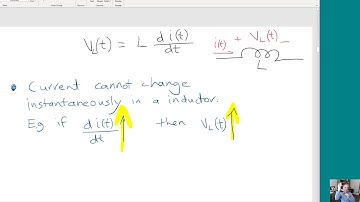 V_L(t) = L d i(t)/dt
i(t) + V_L(t) –
L
• Current cannot change
instantaneously in a inductor.
Eg. if d i(t)/dt ↑ then V_L(t) ↑